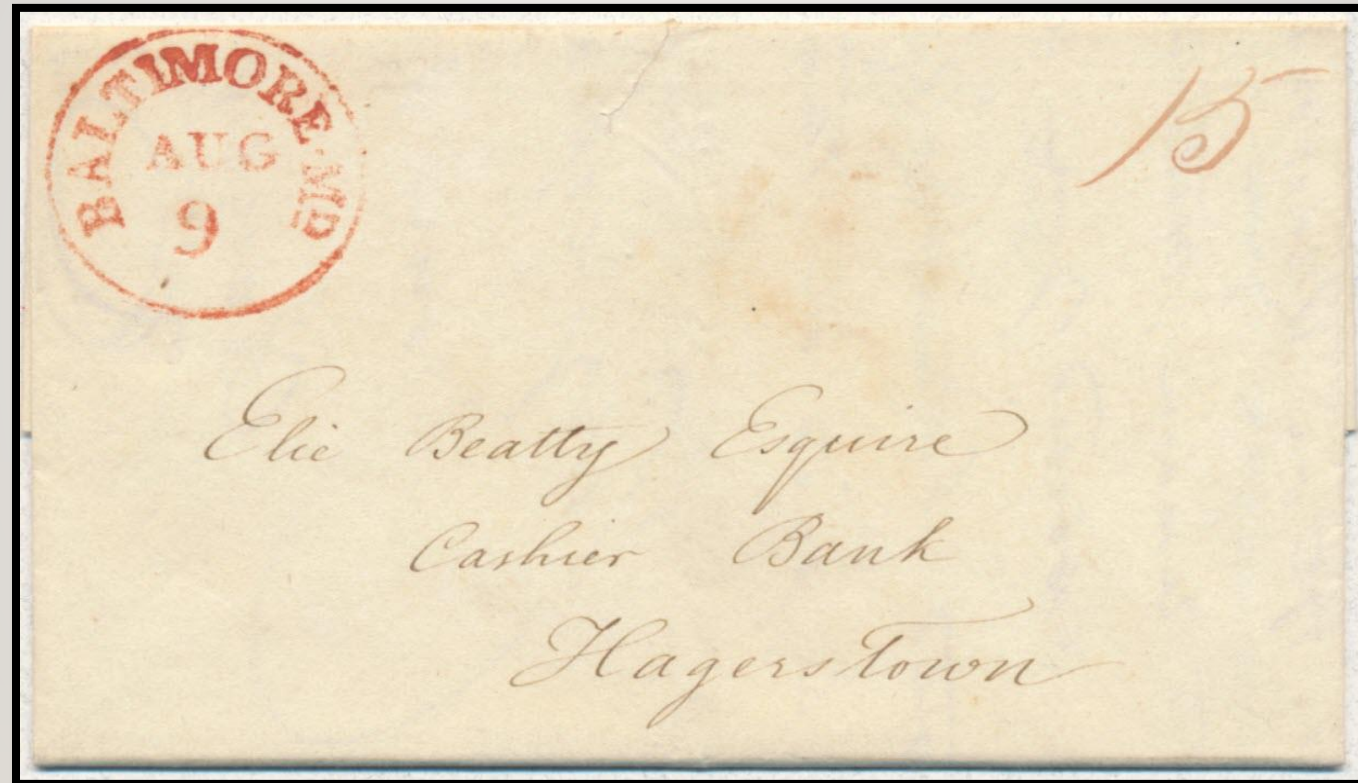 BALTIMORE. MD
AUG
9
15
Elie Beatty Esquire
Cashier Bank
Hagerstown